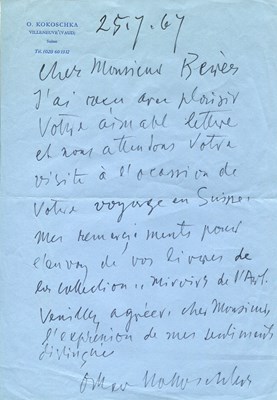 O. KOKOSCHKA
VILLENEUVE (VAUD)
Suisse
25.7.67
Cher Monsieur
J'ai reçu avec plaisir
Votre aimable lettre
et nous attendons Votre
visite à l'occasion de
Votre voyage en Suisse.
Mes remerciments pour
l'envoy de vos livres de
la collection „Miroirs de l'Art.
Veuillez agréer, cher Monsieur,
l'expression de mes sentiments
distingués
Oskar Kokoschka